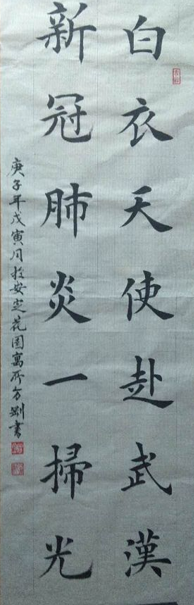 白衣天使赴武漢
新冠肺炎一掃光
庚子年戊寅月於安定花園寓所方剛書